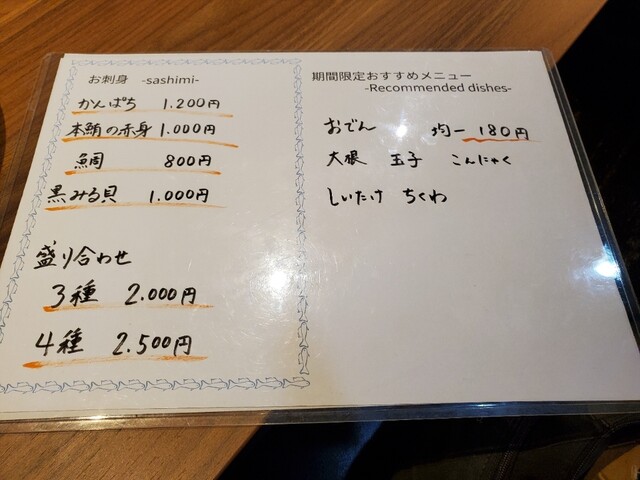 お刺身 -sashimi-
かんぱち 1.200円
本鮪の赤身 1.000円
鯛 800円
黒みる貝 1.000円
盛り合わせ
3種 2.000円
4種 2.500円
期間限定おすすめメニュー
-Recommended dishes-
おでん 均一 180円
大根 玉子 こんにゃく
しいたけ ちくわ